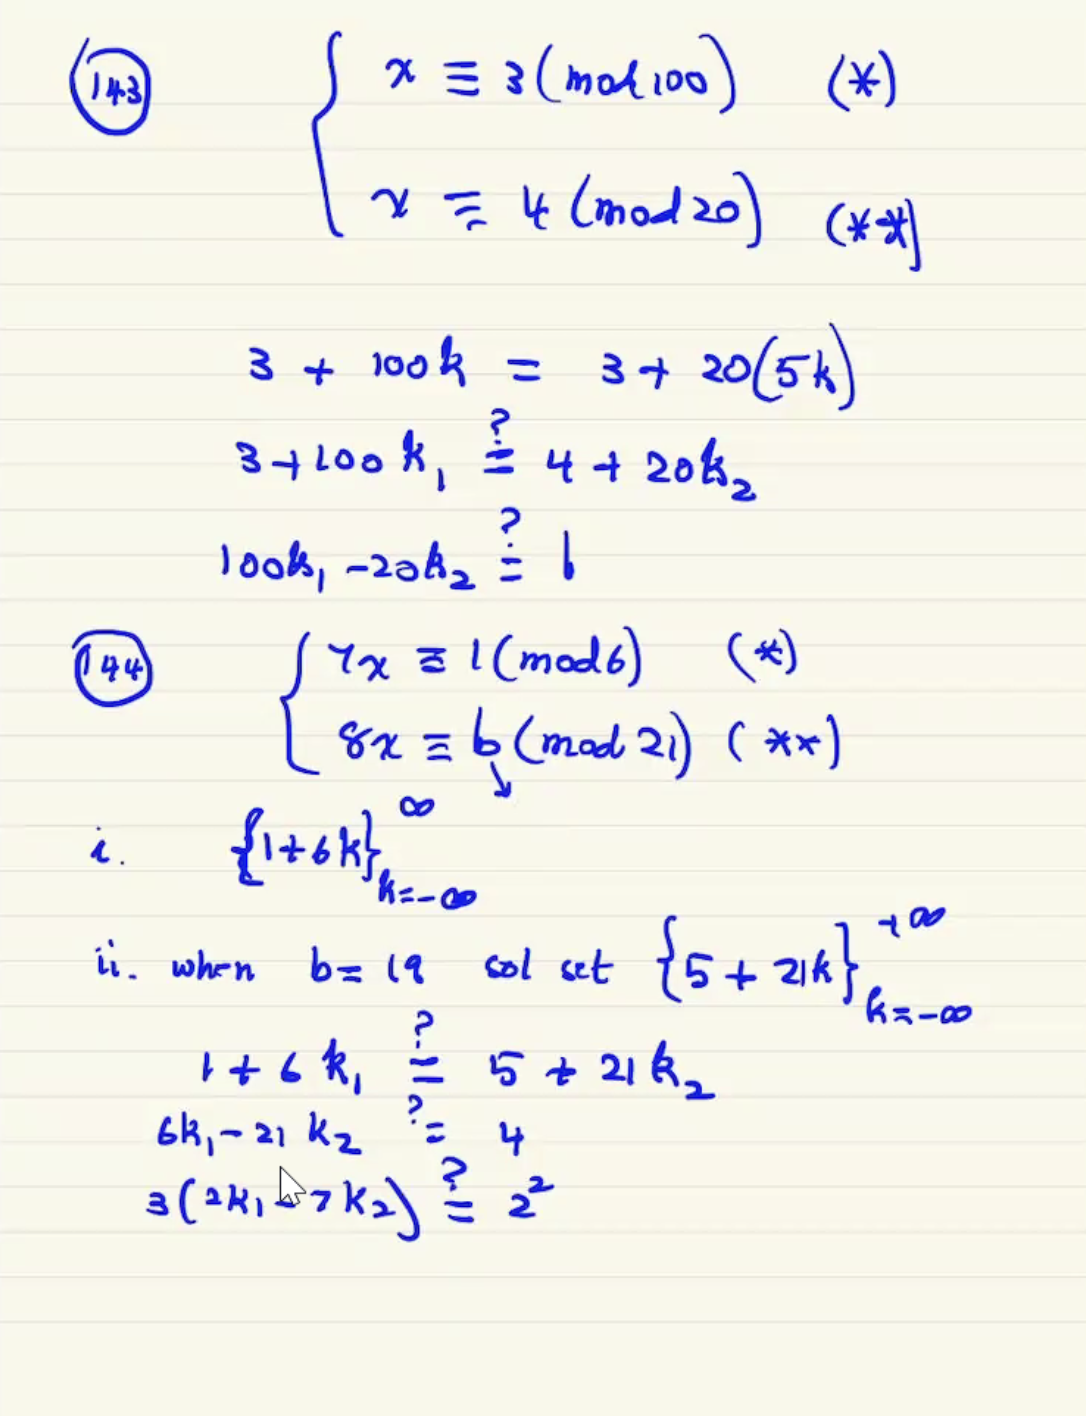 143 { x ≡ 3 (mod 100) (*)
x ≡ 4 (mod 20) (**]
3 + 100k = 3 + 20(5k)
3 + 100k₁ ≟ 4 + 20k₂
100k₁ - 20k₂ ≟ 1
144 { 7x ≡ 1 (mod 6) (*)
8x ≡ b (mod 21) (**)
i. {1+6k}^∞_{k=-∞}
ii. when b = 19 sol set {5 + 21k}^{+∞}_{k=-∞}
1 + 6k₁ ≟ 5 + 21k₂
6k₁ - 21k₂ ≟ 4
3(2k₁ - 7k₂) ≟ 2²